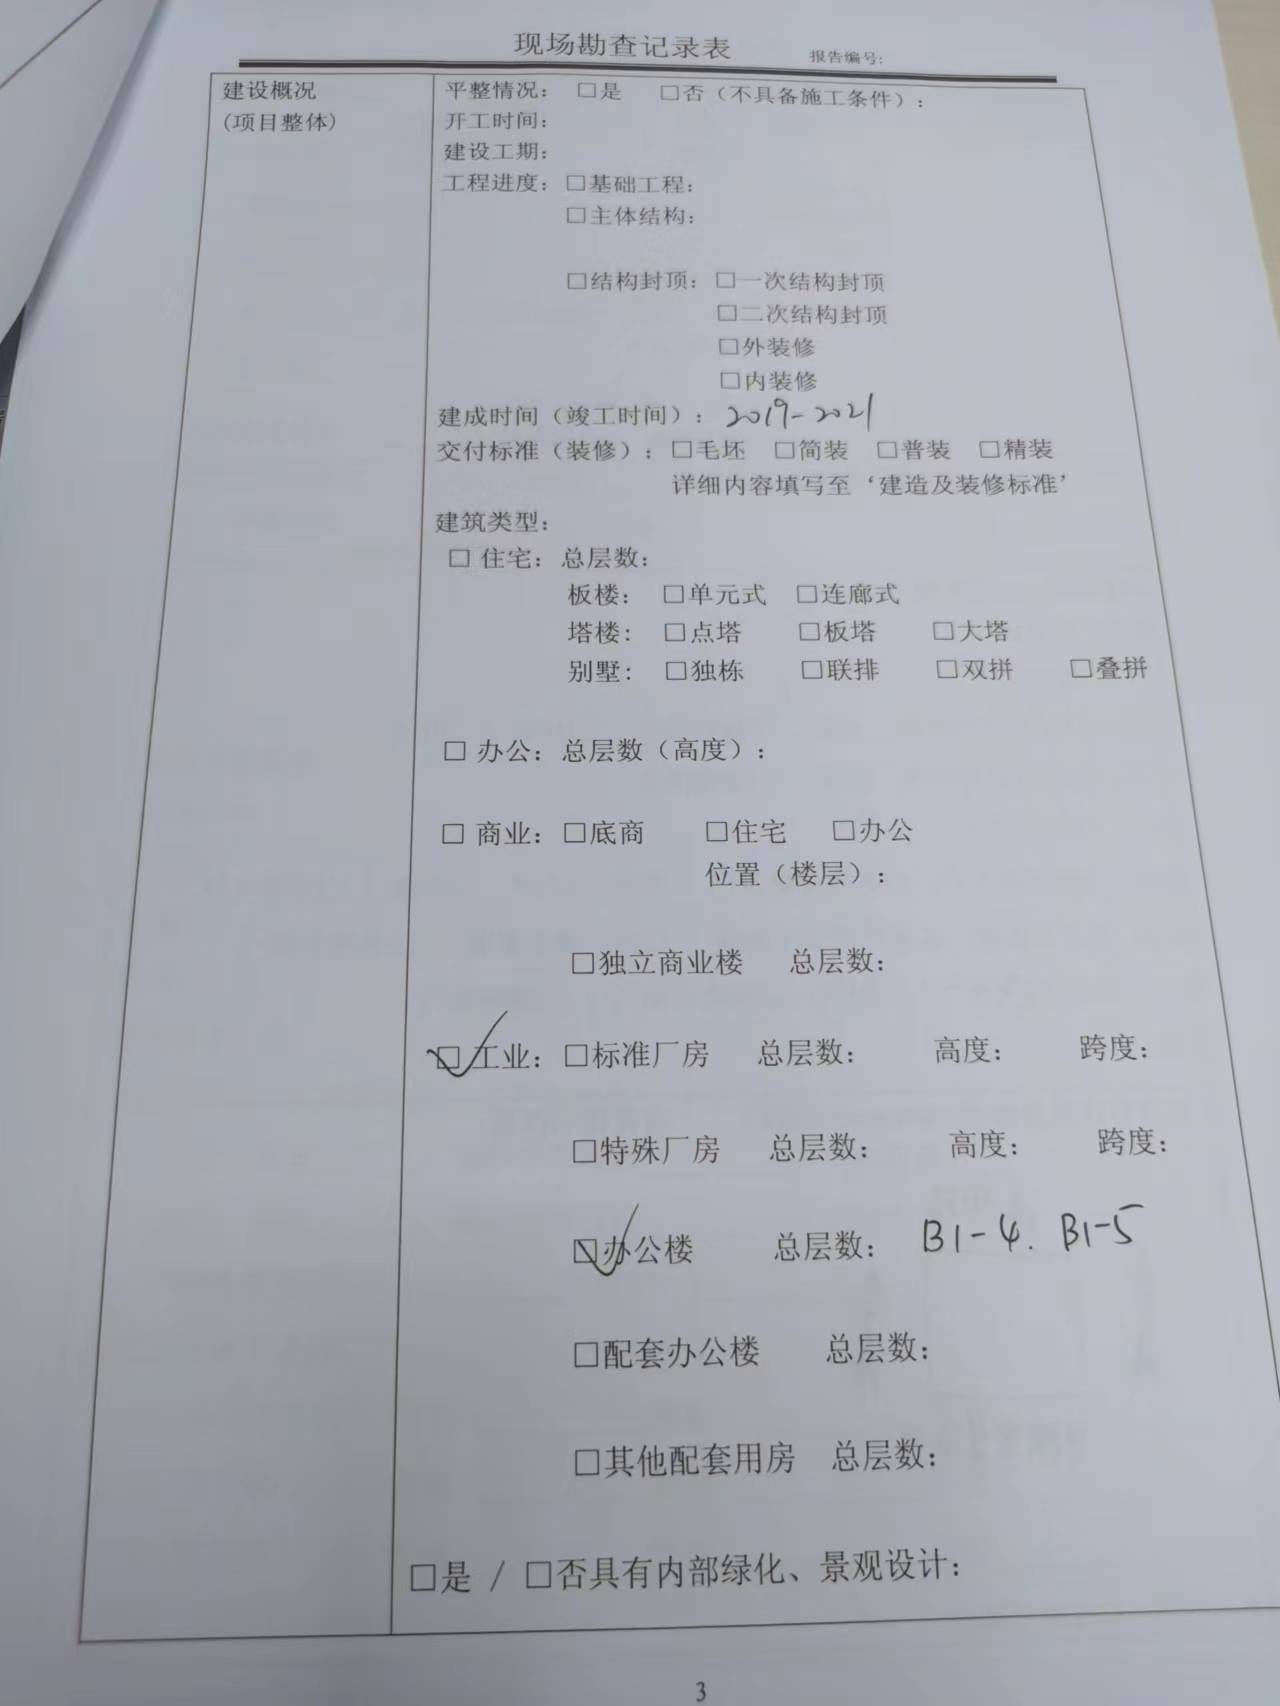 现场勘查记录表 报告编号:
建设概况
(项目整体)
平整情况： □是 □否（不具备施工条件）：
开工时间：
建设工期：
工程进度：□基础工程：
□主体结构：
□结构封顶：□一次结构封顶
□二次结构封顶
□外装修
□内装修
建成时间（竣工时间）：2019-2021
交付标准（装修）：□毛坯 □简装 □普装 □精装
详细内容填写至‘建造及装修标准’
建筑类型：
□ 住宅：总层数：
板楼： □单元式 □连廊式
塔楼： □点塔 □板塔 □大塔
别墅： □独栋 □联排 □双拼 □叠拼
□ 办公：总层数（高度）：
□ 商业：□底商 □住宅 □办公
位置（楼层）：
□独立商业楼 总层数：
☑ 工业：□标准厂房 总层数： 高度： 跨度：
□特殊厂房 总层数： 高度： 跨度：
☑办公楼 总层数： B1-4. B1-5
□配套办公楼 总层数：
□其他配套用房 总层数：
□是 / □否具有内部绿化、景观设计：
3